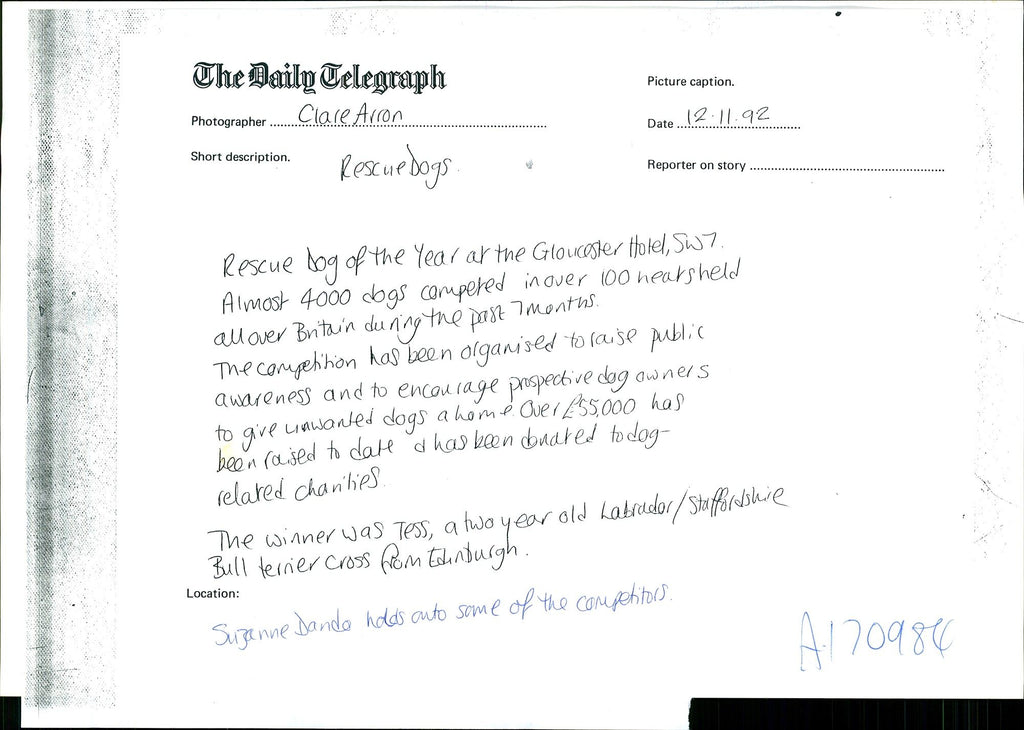 The Daily Telegraph
Picture caption.
Photographer Clare Arron
Date 12.11.92
Short description. Rescue Dogs.
Reporter on story
Rescue Dog of the Year at the Gloucester Hotel, SW7.
Almost 4000 dogs competed in over 100 heats held
all over Britain during the past 7 months.
The competition has been organised to raise public
awareness and to encourage prospective dog owners
to give unwanted dogs a home. Over £55,000 has
been raised to date & has been donated to dog-
related charities.
The winner was Tess, a two year old Labrador/Staffordshire
Bull terrier cross from Edinburgh.
Location:
Suzanne Dando holds onto some of the competitors.